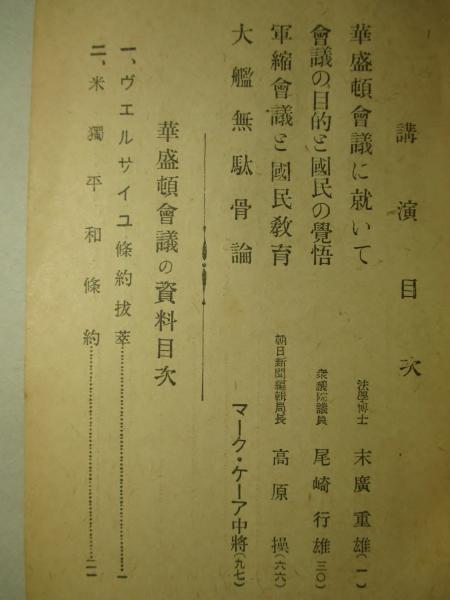 講演目次
華盛頓會議に就いて 法學博士 末廣重雄(一)
會議の目的と國民の覺悟 衆議院議員 尾崎行雄(三〇)
軍縮會議と國民敎育 朝日新聞編輯局長 高原操(六六)
大艦無駄骨論 マーク・ケーア中將(九七)
華盛頓會議の資料目次
一、ヴエルサイユ條約拔萃…………一
二、米獨平和條約…………二一